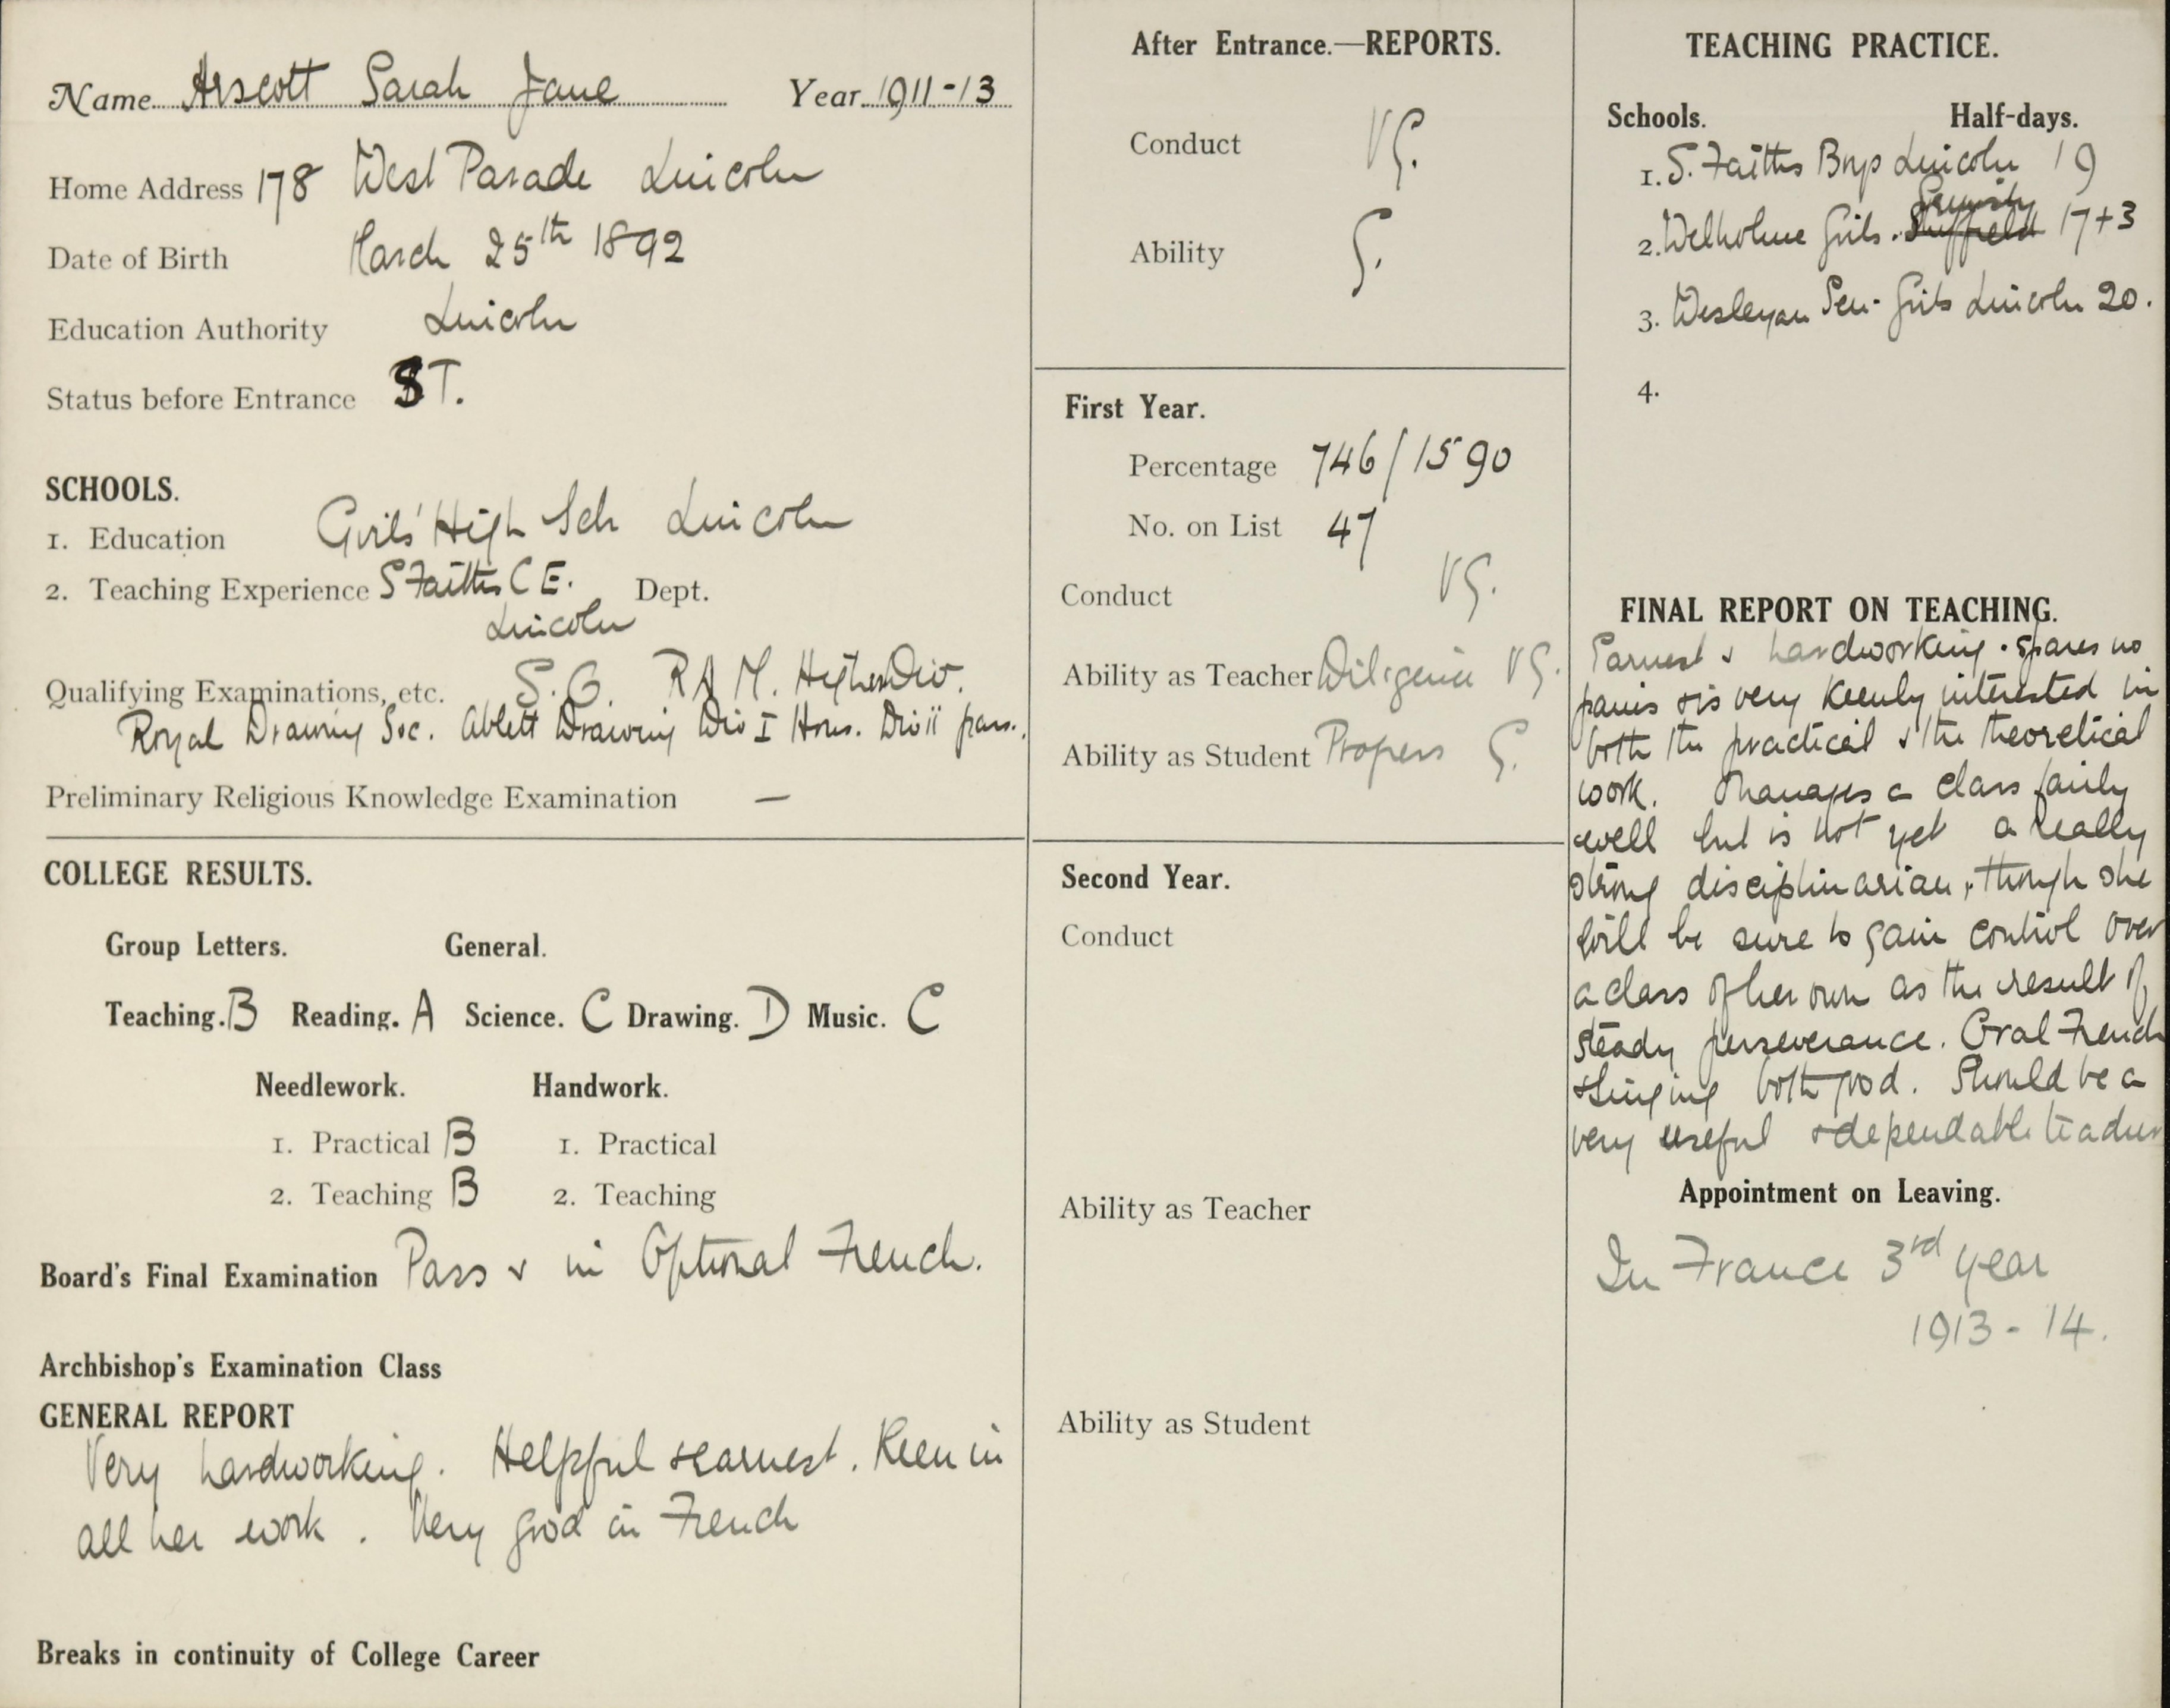 Name Arscott Sarah Jane Year 1911-13
Home Address 178 West Parade Lincoln
Date of Birth March 25th 1892
Education Authority Lincoln
Status before Entrance ST.
SCHOOLS.
1. Education Girls' High Sch Lincoln
2. Teaching Experience S Faiths C E. Dept.
Lincoln
Qualifying Examinations, etc. S.C. RAM. Higher Div.
Royal Drawing Soc. Ablett Drawing Div I Hons. Div ii pass.
Preliminary Religious Knowledge Examination —
COLLEGE RESULTS.
Group Letters. General.
Teaching. B Reading. A Science. C Drawing. D Music. C
Needlework. Handwork.
1. Practical B 1. Practical
2. Teaching B 2. Teaching
Board's Final Examination Pass & in Optional French.
Archbishop's Examination Class
GENERAL REPORT
Very hardworking. Helpful & earnest. Keen in
all her work. Very good in French
Breaks in continuity of College Career
After Entrance.—REPORTS.
Conduct VG.
Ability G.
First Year.
Percentage 746/1590
No. on List 47
Conduct VG.
Ability as Teacher Diligence VG.
Ability as Student Progress G.
Second Year.
Conduct
Ability as Teacher
Ability as Student
TEACHING PRACTICE.
Schools. Half-days.
1. S. Faiths Boys Lincoln 19
Grimsby
2. Welholme Girls. Sheffield 17+3
3. Wesleyan Sen. Girls Lincoln 20.
4.
FINAL REPORT ON TEACHING.
Earnest & hardworking. spares no
pains & is very keenly interested in
both the practical & the theoretical
work. Manages a class fairly
well but is not yet a really
strong disciplinarian, though she
will be sure to gain control over
a class of her own as the result of
steady perseverance. Oral French
& singing both good. Should be a
very useful & dependable teacher
Appointment on Leaving.
In France 3rd year
1913-14.